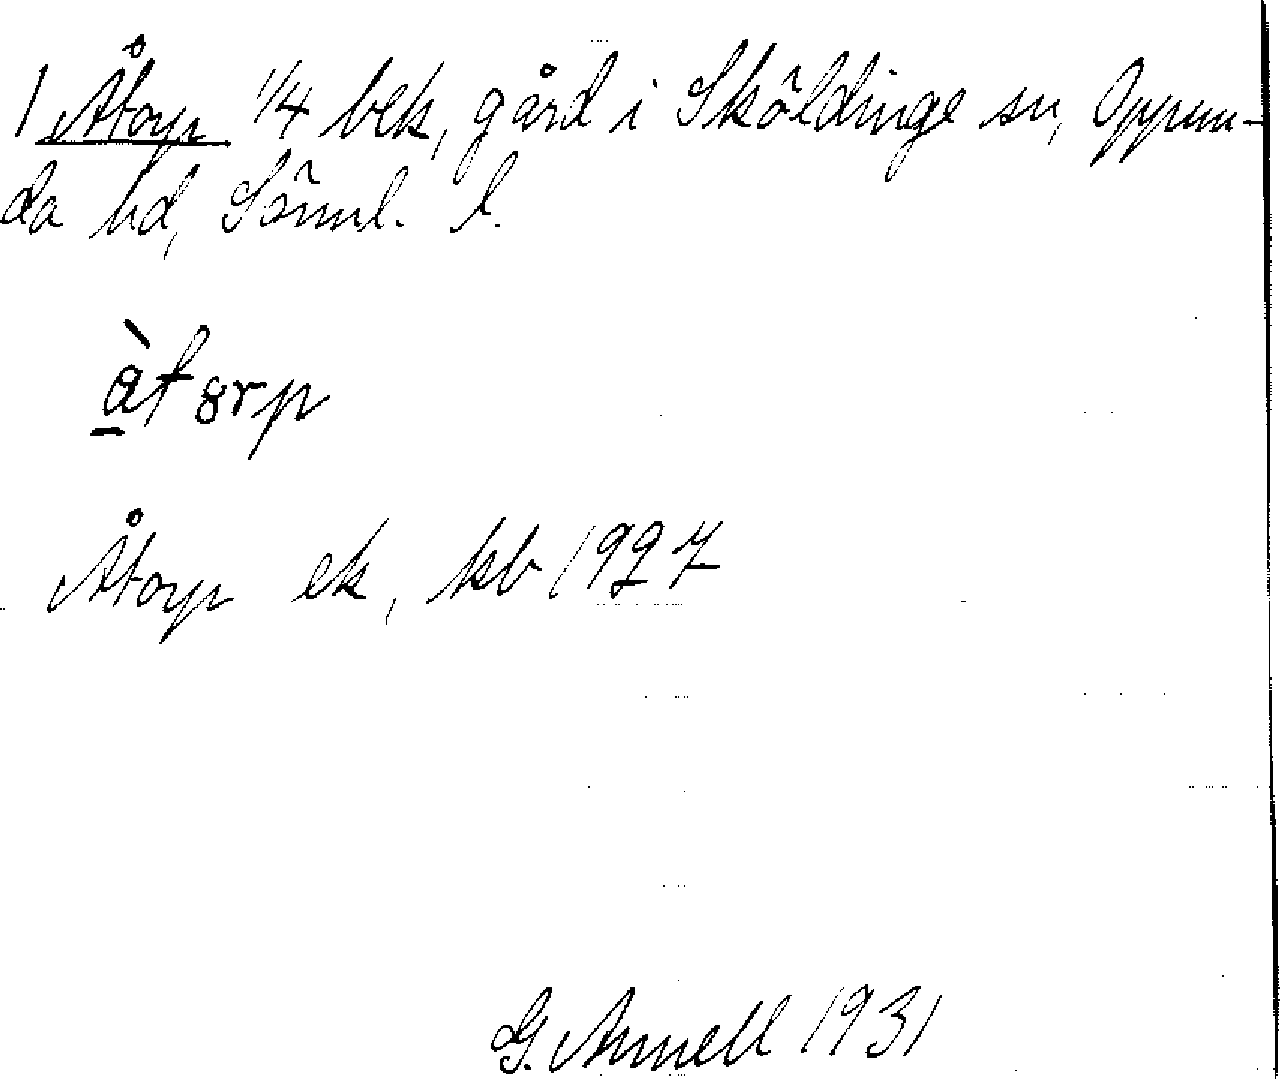 1 Åtorp 1/4 bek, gård i Sköldinge sn, Oppun-
da hd, Sörml. l.
å̀torp
Åtorp ek, kb 1927
G. Arnell 1931